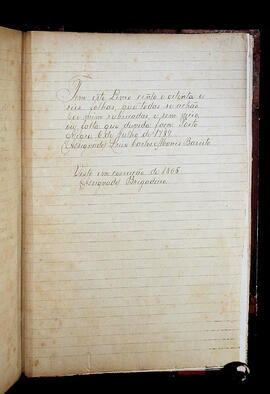 Tem este Livro cento e oitenta e
seis folhas, que todas se achão
por mim rubricadas, e sem vicio
ou falta que duvida faça. Porto
Alegre 6 de Julho de 1789
(Assignado) Luiz Carlos Moniz Barreto
Visto em correição de 1805
(Assignado) Brigadeiro